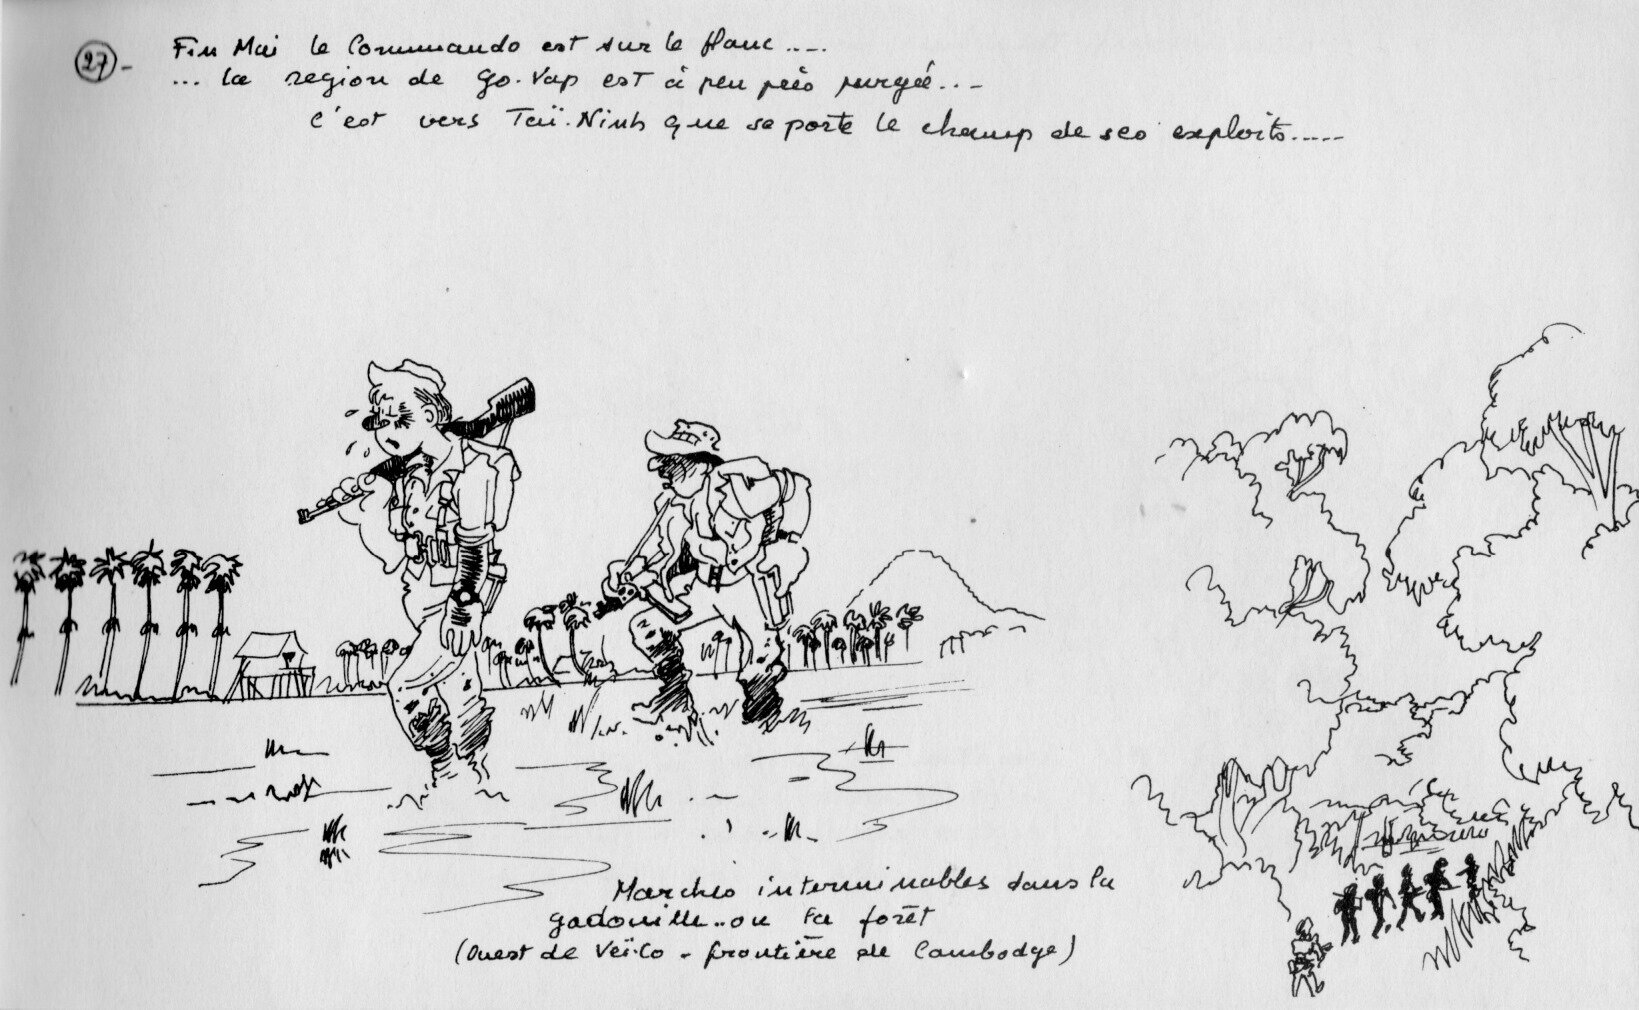 27.- Fin Mai le Commando est sur le flanc ....
... la région de Go.Vap est à peu près purgée...-
c'est vers Taï.Ninh que se porte le champ de ses exploits.....
Marches interminables dans la
gadouille..ou la forêt
(Ouest de Veï-Co - frontière de Cambodge)